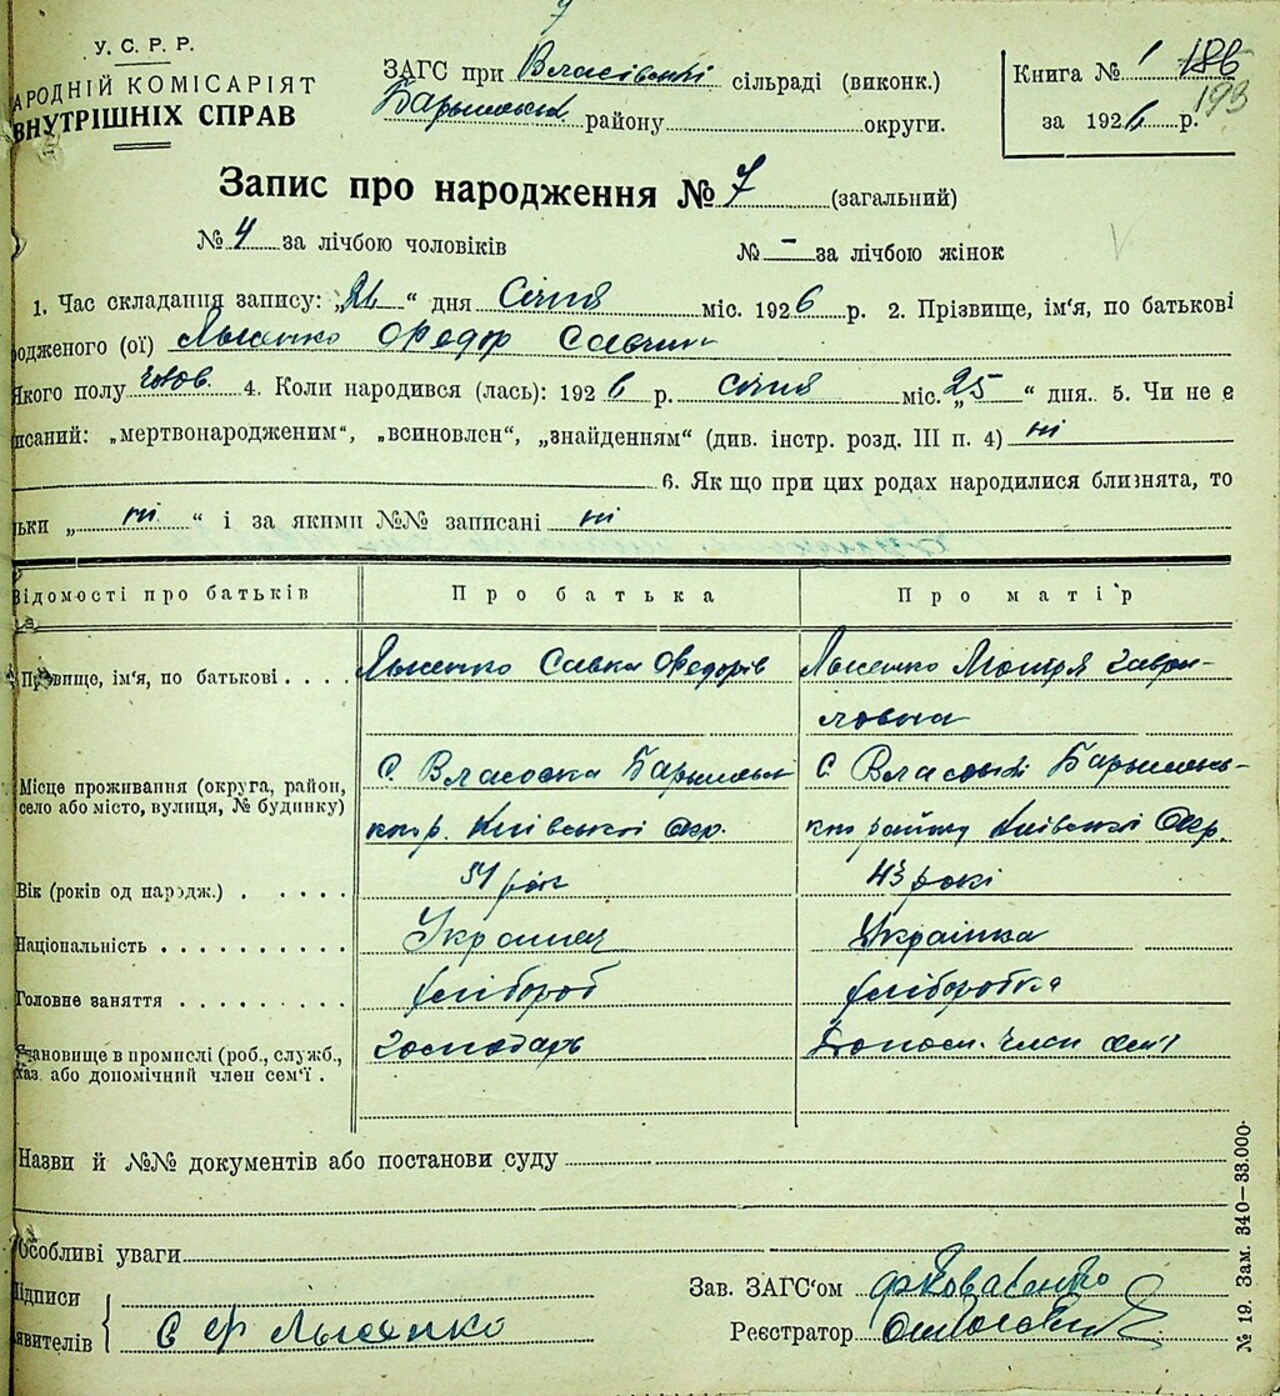 У. С. Р. Р.
АРОДНІЙ КОМІСАРІЯТ
ВНУТРІШНІХ СПРАВ
ЗАГС при Власівські сільраді (виконк.)
району округи.
Книга № 1 186
193
за 1926 р.
Запис про народження № 7 (загальний)
№ 4 за лічбою чоловіків № - за лічбою жінок
1. Час складання запису: „ “ дня Січня міс. 1926 р. 2. Прізвище, ім‘я, по батькові
одженого (ої) Лысенко Федор
Якого полу чолов. 4. Коли народився (лась): 1926 р. січня міс. „25“ дня. 5. Чи не є
исаний: „мертвонародженим“, „всиновлен“, „знайденням“ (див. інстр. розд. III п. 4) ні
6. Як що при цих родах народилися близнята, то
ьки „ ні “ і за якими №№ записані ні
Відомості про батьків Про батька Про матір
Прізвище, ім‘я, по батькові . . . . Лысенко Савка Федорів Лысенко Мотря Гаври-
ловна
Місце проживання (округа, район, с. Власовка с. Власовкі
село або місто, вулиця, № будинку) Київської Окр. району Київської Окр.
Вік (років од народж.) . . . . . 51 рік 43 рокі
Національність . . . . . . . . . . Українец Українка
Головне заняття . . . . . . . . . хлібороб хліборобка
Становище в промислі (роб., служб., Господарь Допом. член сем'ї
хаз. або допомічний член сем‘ї .
Назви й №№ документів або постанови суду
Особливі уваги
ідписи
явителів С Ф Лысенко
Зав. ЗАГС‘ом
Реєстратор
№ 19. Зам. 340—33.000.